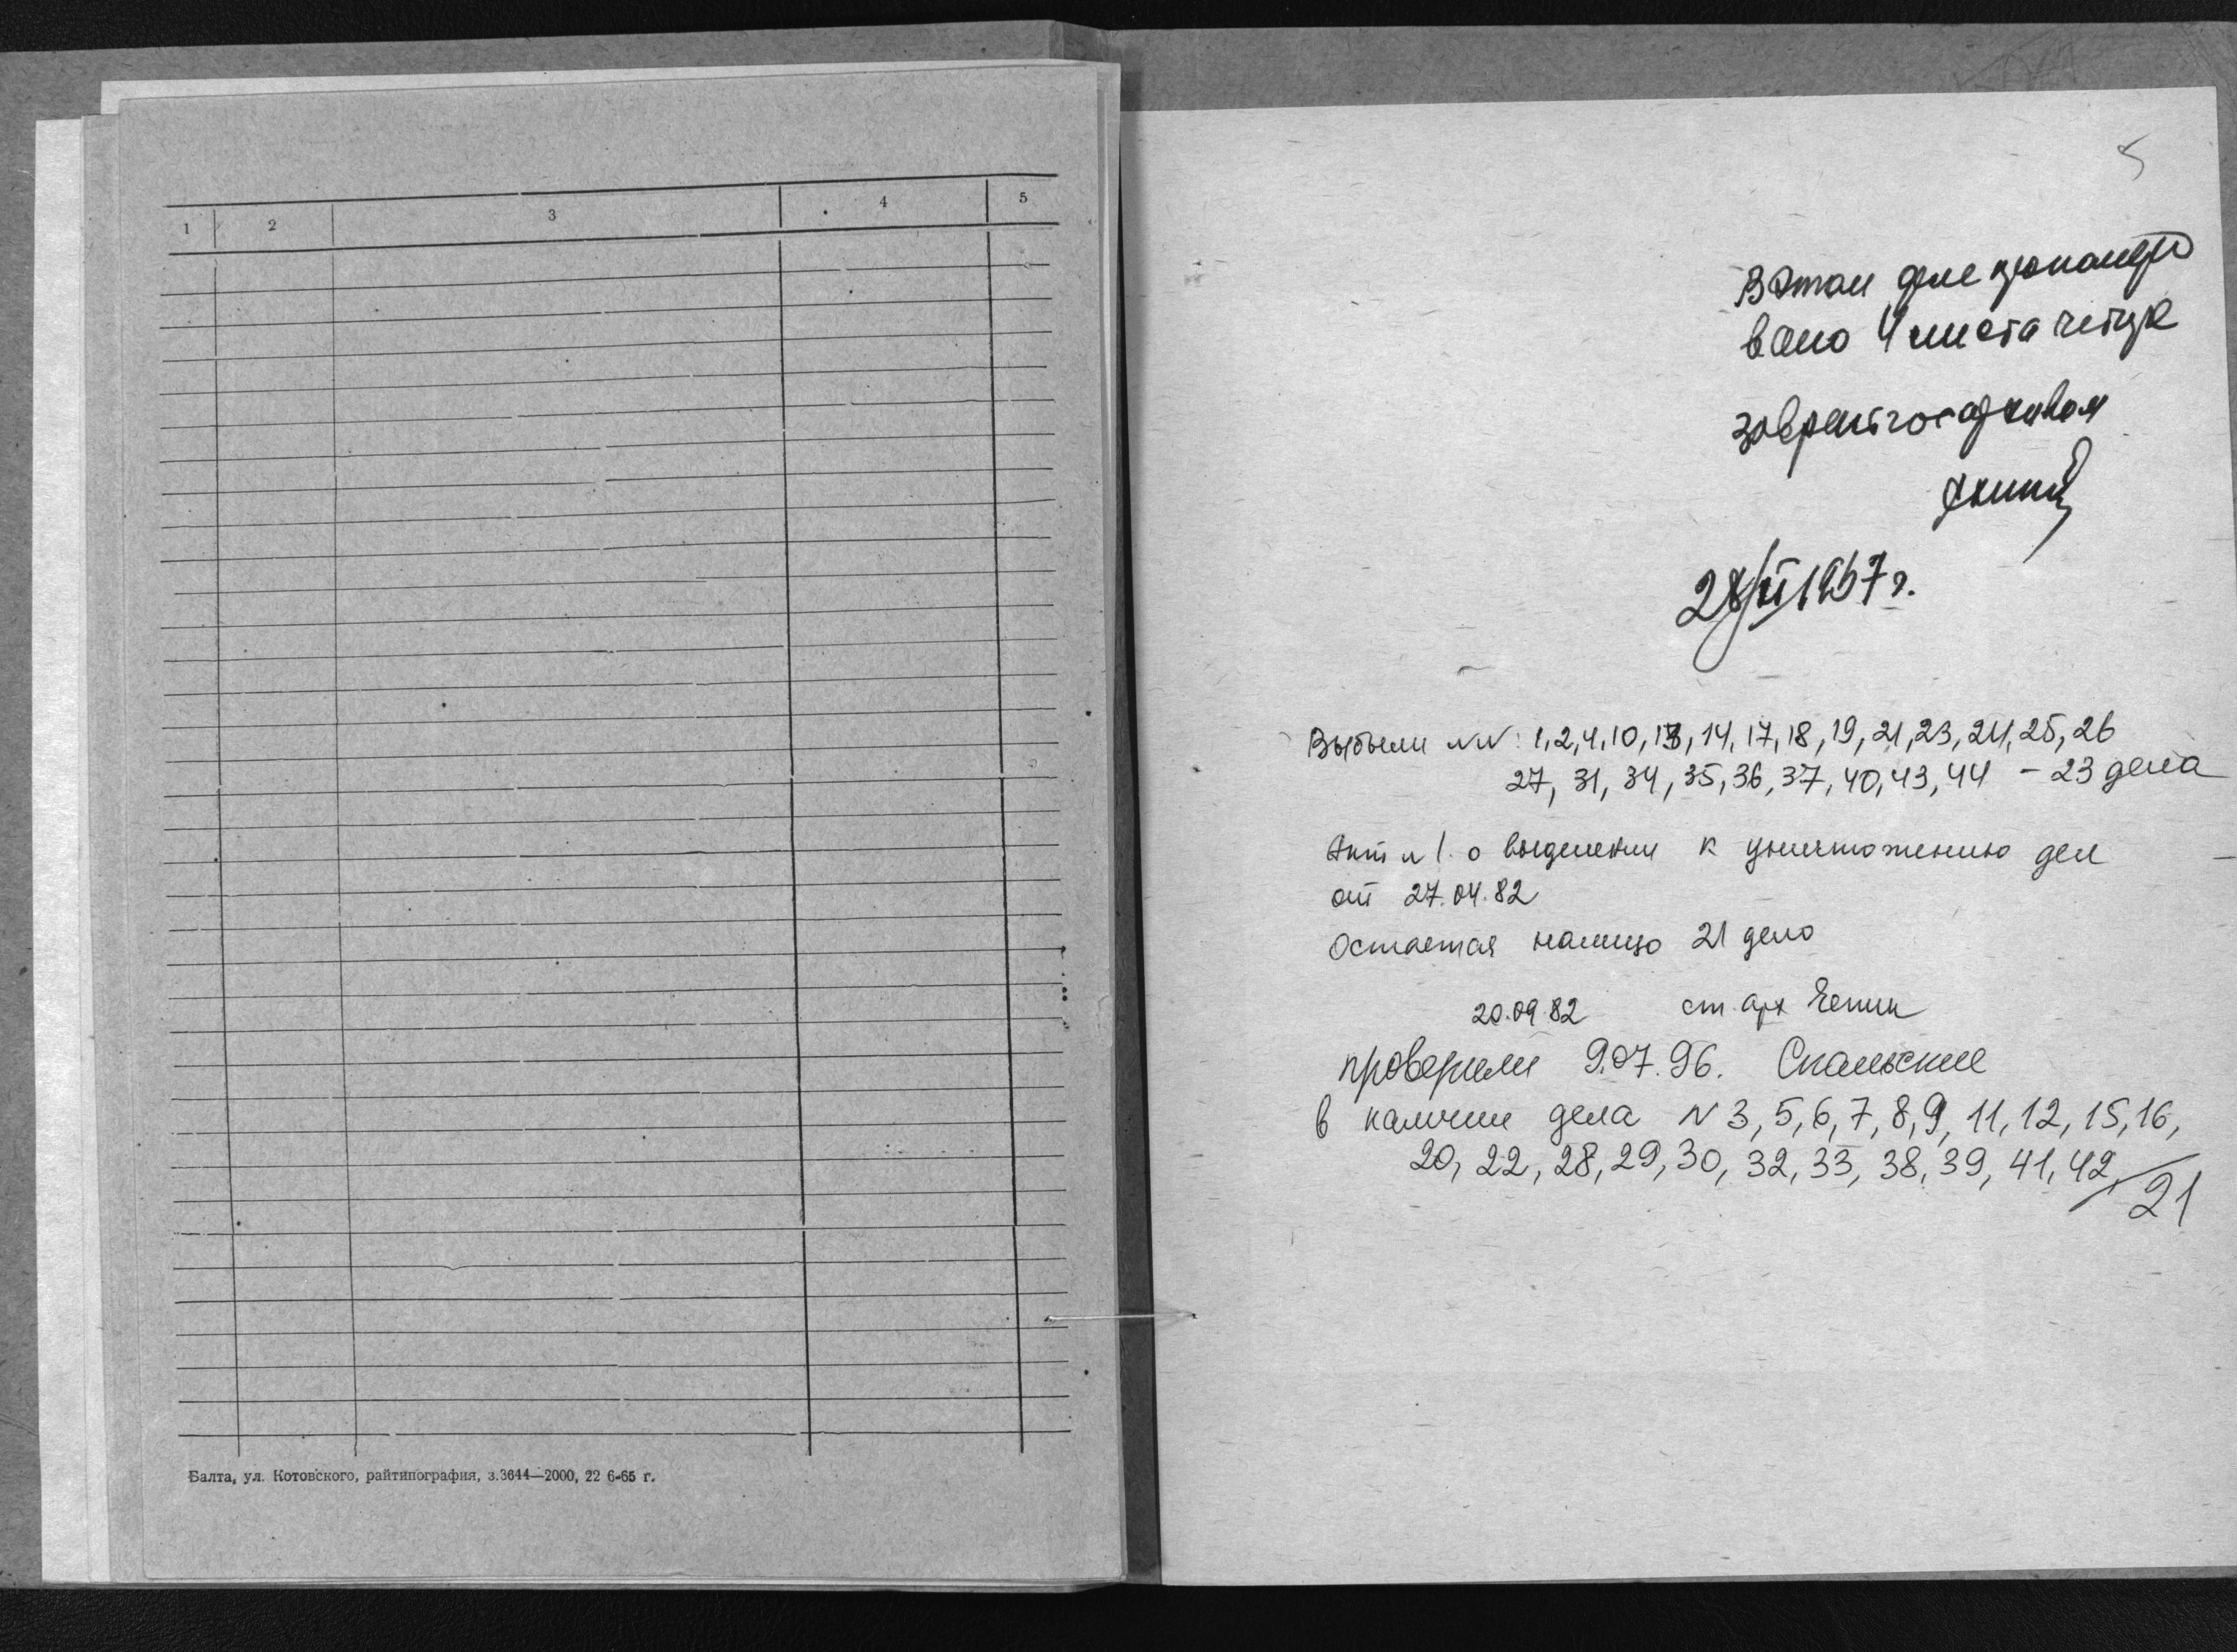 1 2 3 4 5
Балта, ул. Котовского, райтипография, з.3644—2000, 22 6-65 г.
5
В этом деле пронумеро
вано 4 листа четыре
завгайгосархивом
28/VI 1967 г.
Выбыли NN: 1,2,4,10,13,14,17,18,19,21,23,24,25,26
27, 31, 34, 35, 36, 37, 40, 43, 44 – 23 дела
Акт N 1. о выделении к уничтожению дел
от 27.04.82
Остается налицо 21 дело
20.09.82 ст. арх Чепик
проверили 9.07.96. Скальские
в наличии дела N 3, 5, 6, 7, 8, 9, 11, 12, 15, 16,
20, 22, 28, 29, 30, 32, 33, 38, 39, 41, 42 / 21